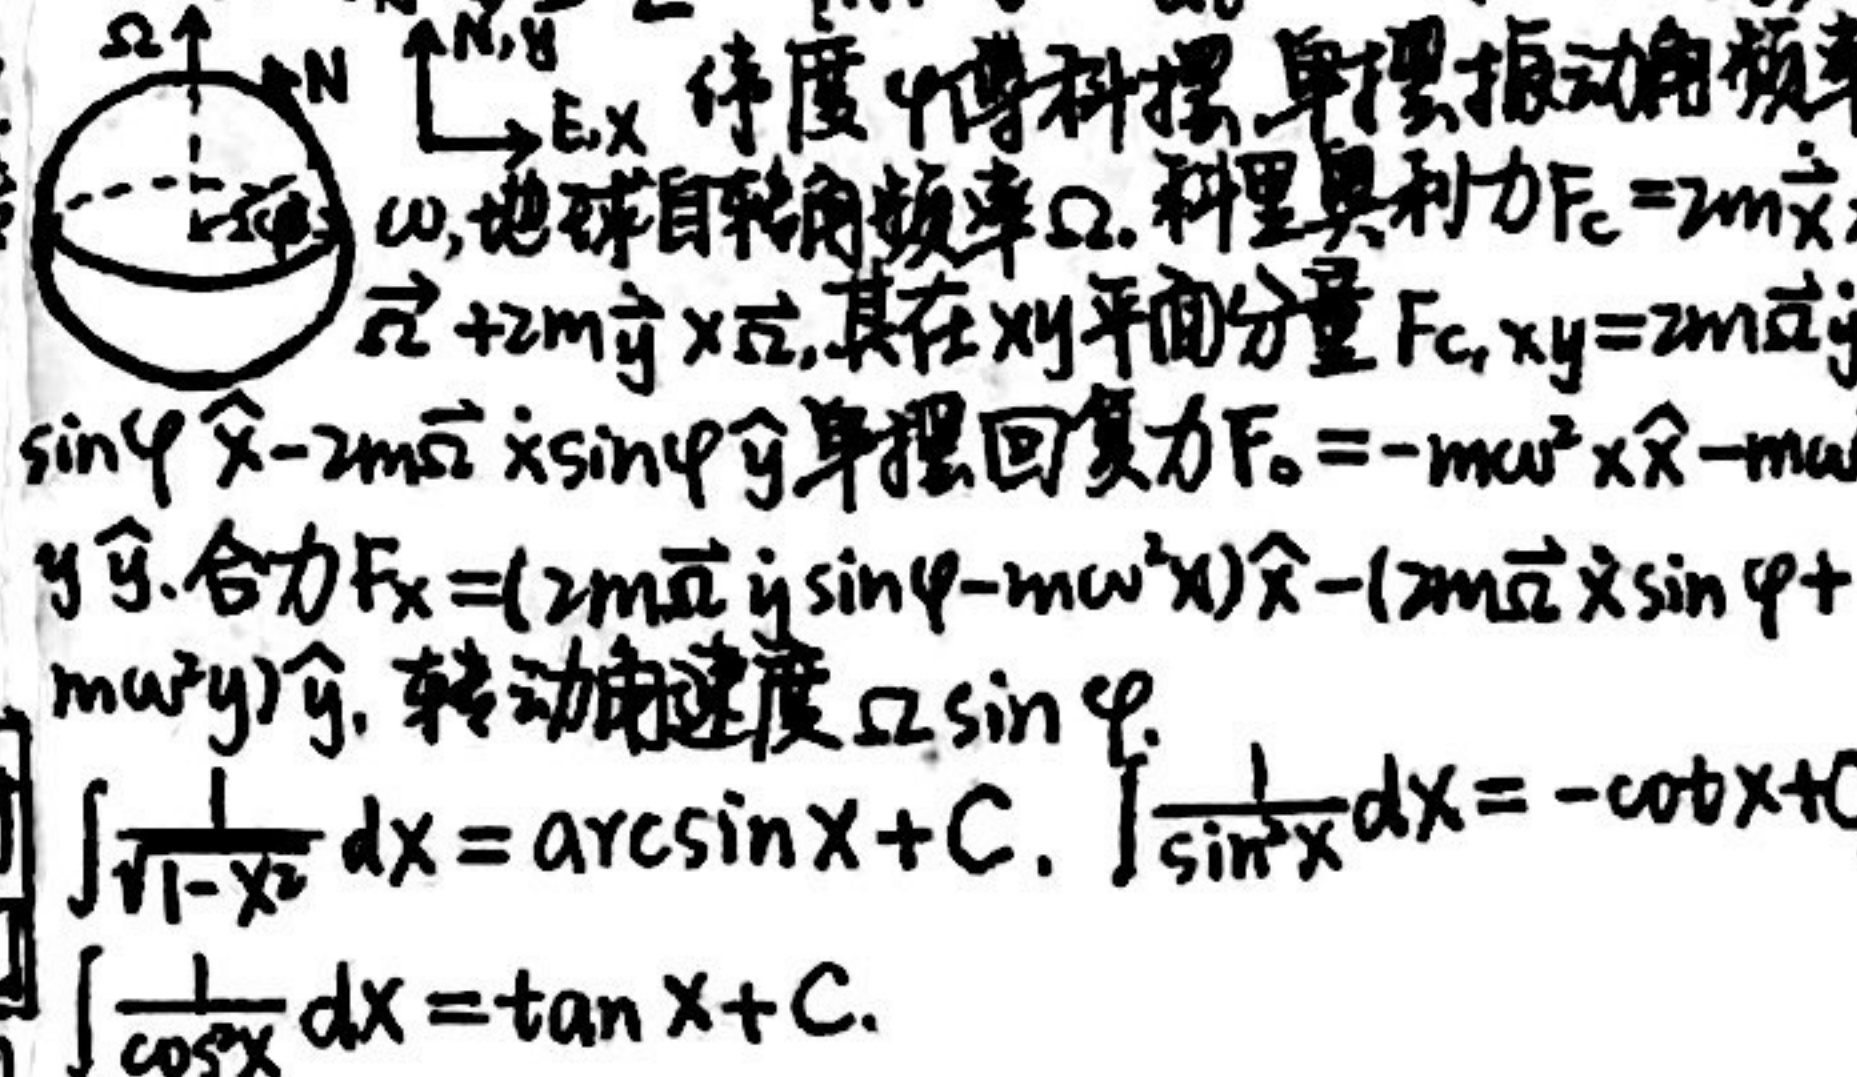 Ω N N,y 纬度φ傅科摆.单摆振动角频率
E,x
ω,地球自转角频率Ω.科里奥利力F_c=2m\vec{\dot{x}}×
\vec{Ω}+2m\vec{\dot{y}}×\vec{Ω},其在xy平面分量F_{c,xy}=2m\vec{Ω}\dot{y}
sinφ\hat{x}-2m\vec{Ω}\dot{x}sinφ\hat{y}单摆回复力F_0=-mω²x\hat{x}-mω
y\hat{y}.合力F_x=(2m\vec{Ω}\dot{y}sinφ-mω²x)\hat{x}-(2m\vec{Ω}\dot{x}sinφ+
mω²y)\hat{y}.转动角速度Ωsinφ.
∫\frac{1}{\sqrt{1-x²}}dx=arcsinx+C. ∫\frac{1}{sin²x}dx=-cotx+C
∫\frac{1}{cos²x}dx=tanx+C.